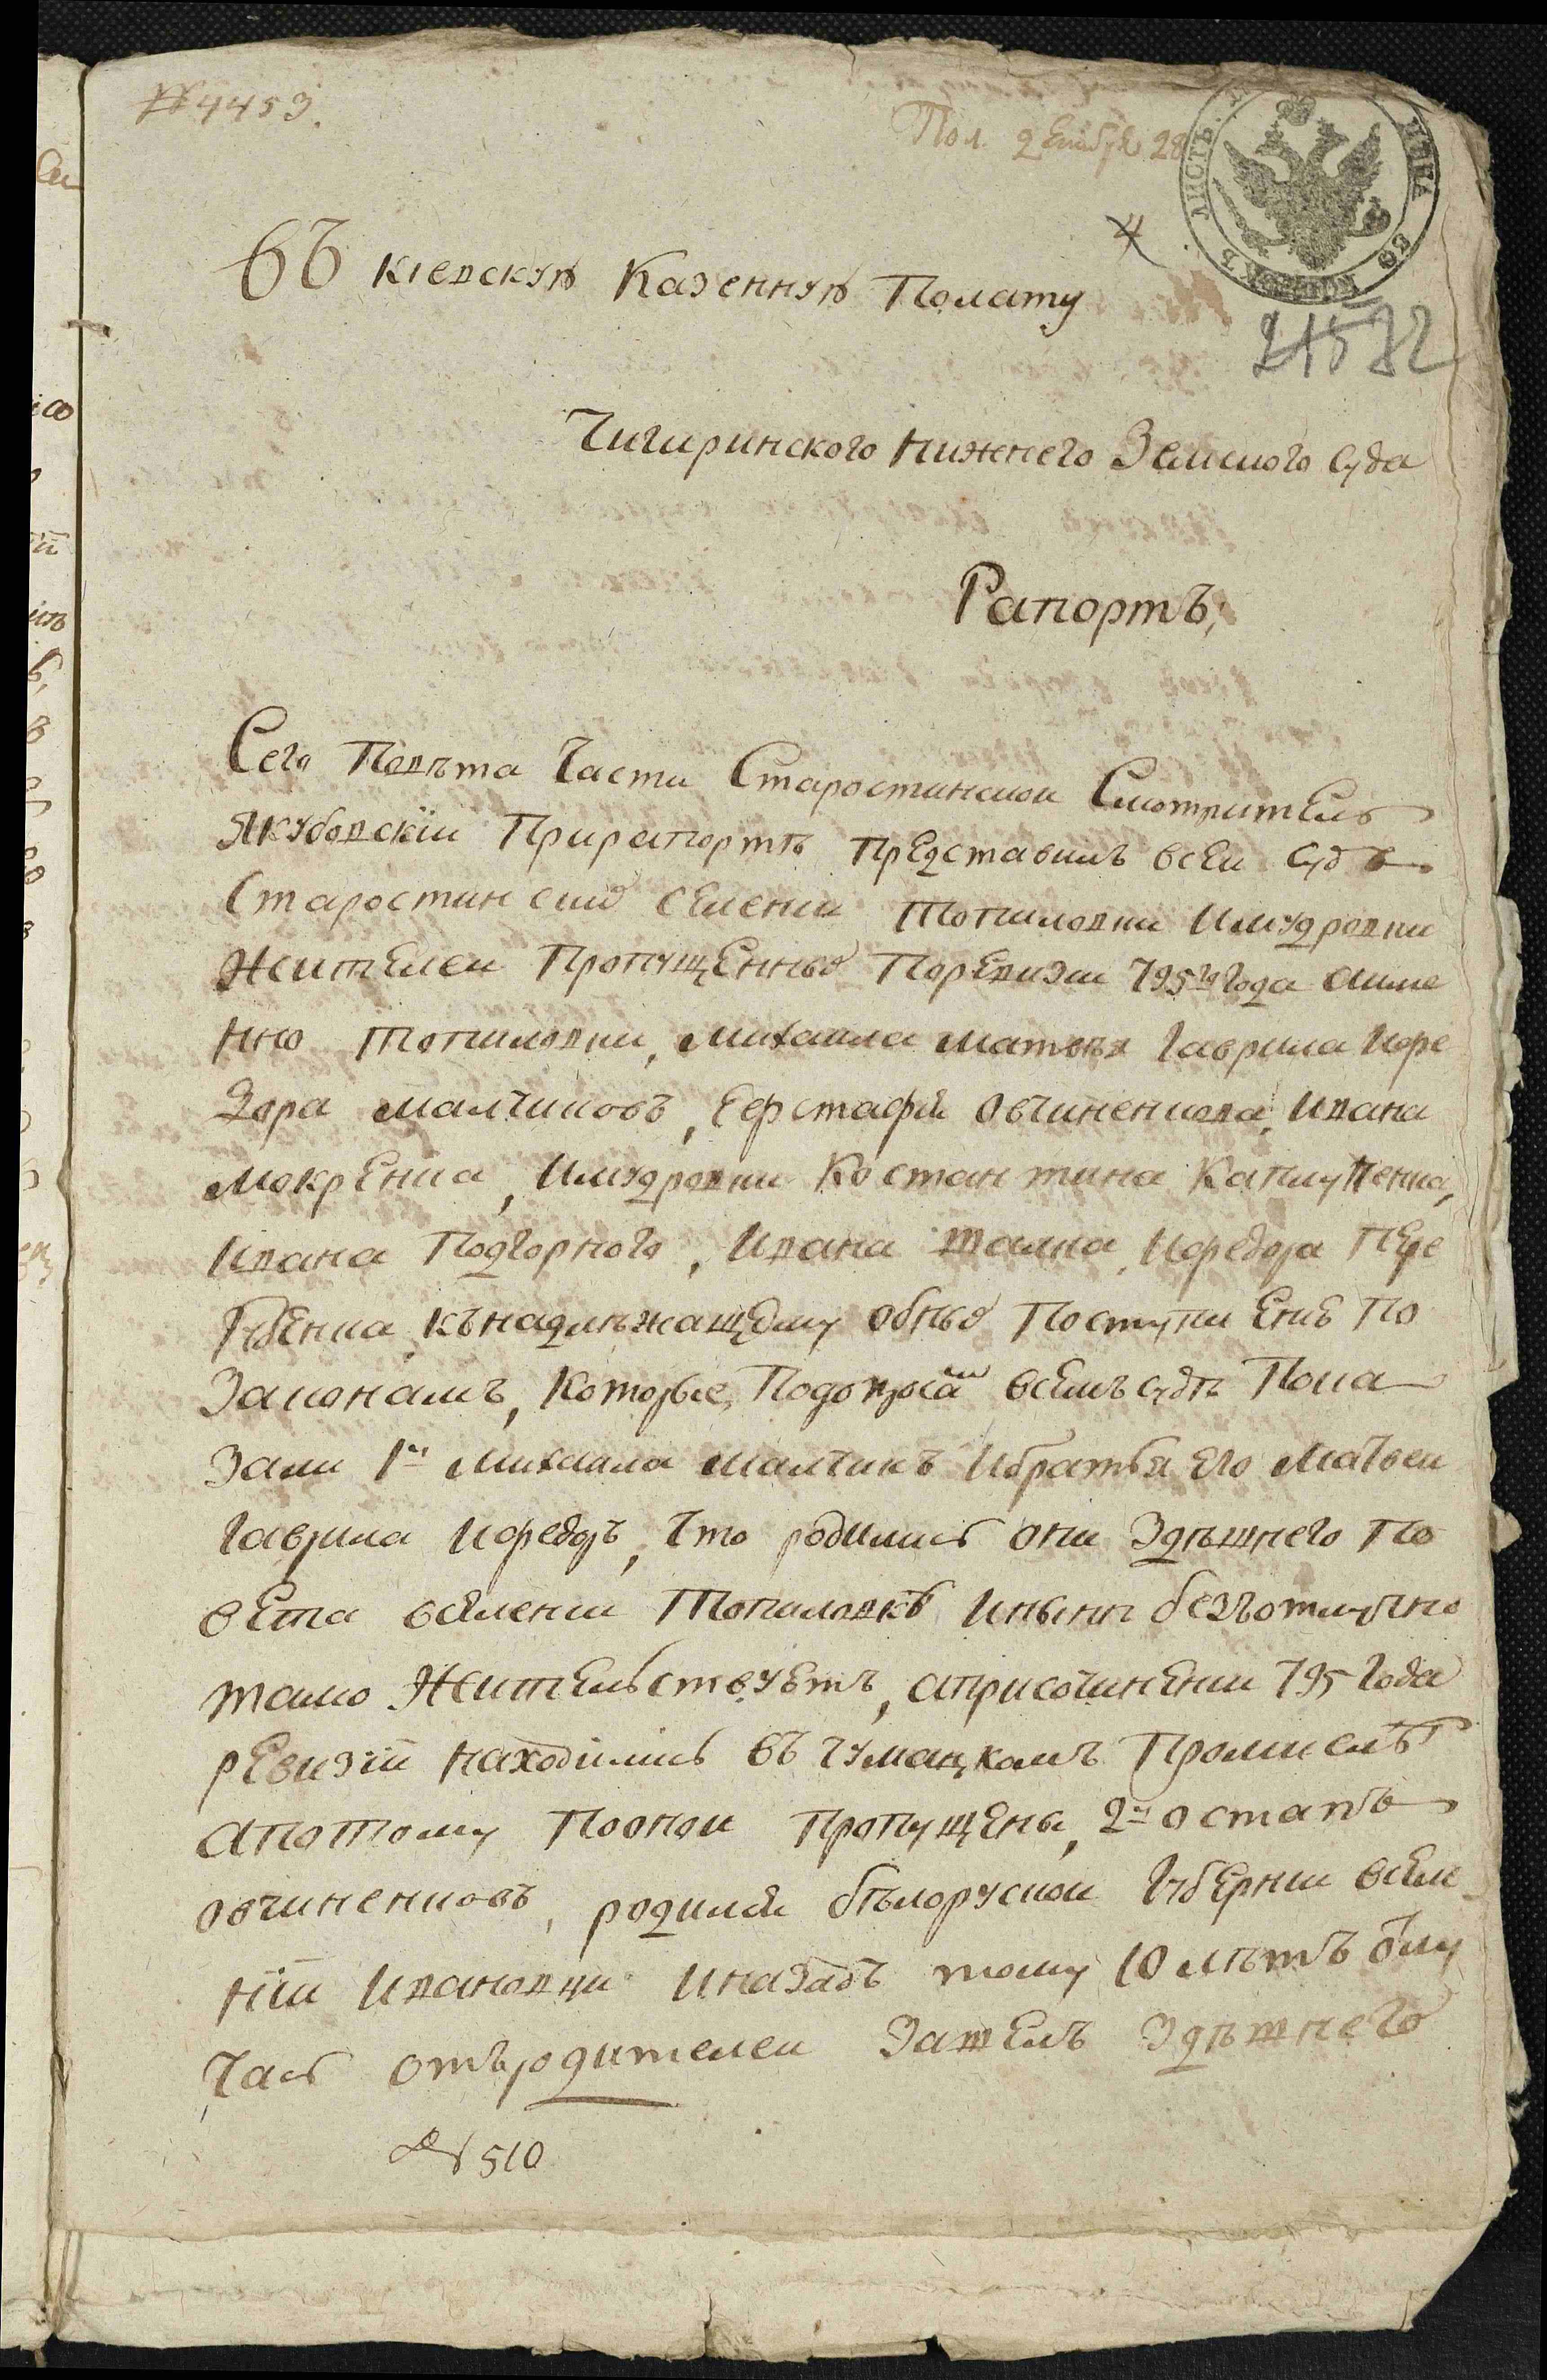 № 4453.
Пол. 28
ЛИСТЪ. ЦѢНА
4
21582
Въ киевскую Казенную Полату
Чигиринского Нижнего Земского Суда
Рапортъ,
Сего Повѣта Части Старостинской Смотритель
Якубовскїй Прирапортѣ Представилъ всеи Судъ
Старостинских Селении Топиловки Имудровки
Жителеи Пропущенных Поревизии 795го Года аиме
нно Топиловки, Михаила Матвѣя Гаврила Ифе
дора Малчиковъ, Еефстафия Овчиненкова, Ивана
Мокренка, Имудровки Костантина Каплуненка,
Ивана Подгорного, Ивана Шамна, Ифедора Пере
Рубенка, кънадлежащему обных Поступлению По
Законамъ, Которые, Подопросам всемъ судѣ Пока
зали 1й Михаила Малчикъ Ибратья его Матвеи
Гаврила Ифедоръ, Что родились они Здѣшнего По
вета вселении Топиловкѣ Инынѣ безъотлучно
тамо Жительствуетъ, априсочинении 795 Года
ревизїи Находились въ Чумацкомъ Промислѣ
апотому Поонои Пропущены, 2й остапъ
овчиненковъ, родился бѣлоруской Губернии всели
нїи Ивановци Иназадъ тому 10 лѣтъ отлу
чась отъродителеи Зашелъ Здѣшнего
№ 510